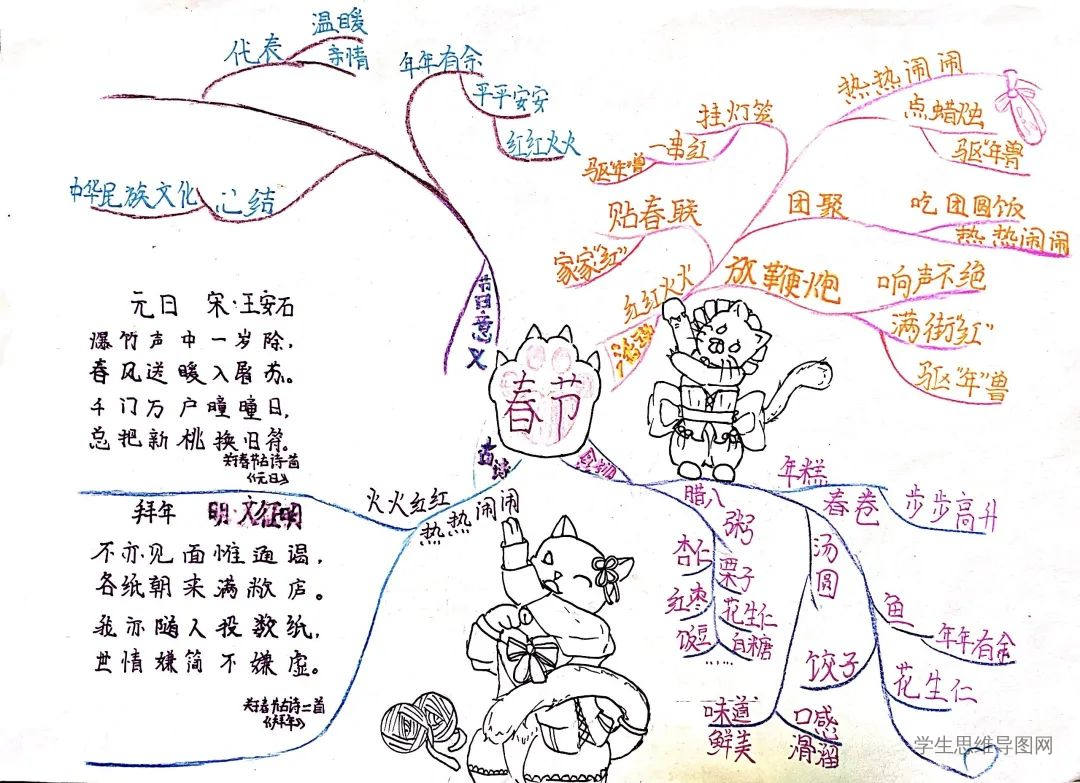 春节
节日意义
代表
温暖
亲情
中华民族文化
心结
年年有余
平平安安
红红火火
红红火火
热热闹闹
点蜡烛
驱"年"兽
挂灯笼
一串红
驱"年"兽
贴春联
家家"红"
团聚
吃团圆饭
热热闹闹
放鞭炮
响声不绝
满街"红"
驱"年"兽
古诗
火火红红
热热闹闹
元日 宋·王安石
爆竹声中一岁除，
春风送暖入屠苏。
千门万户曈曈日，
总把新桃换旧符。
关于春节古诗一首
《元日》
拜年 明·文征明
不亦见面惟通谒，
各纸朝来满敝庐。
我亦随人投数纸，
世情嫌简不嫌虚。
关于春节古诗二首
《拜年》
食物
腊八
粥
杏仁
栗子
红枣
花生仁
饭豆
白糖
……
年糕
春卷
步步高升
汤圆
味道
鲜美
口感
滑溜
饺子
鱼
年年有余
花生仁
学生思维导图网